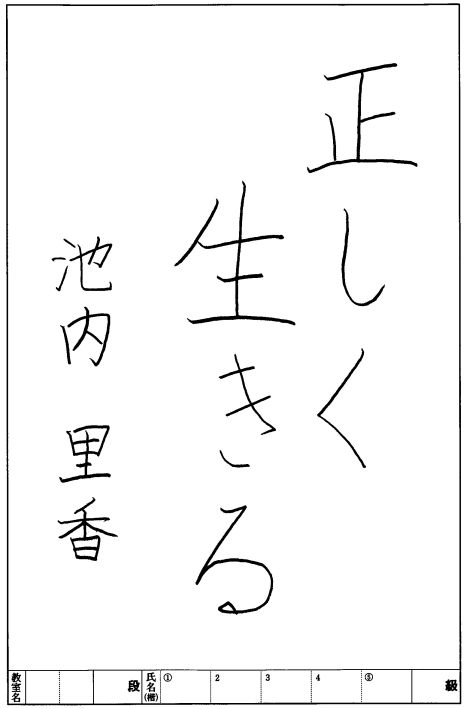 正しく
生きる
池内 里香
教室名 段 氏名(欄) ① 2 3 4 ⑤ 級